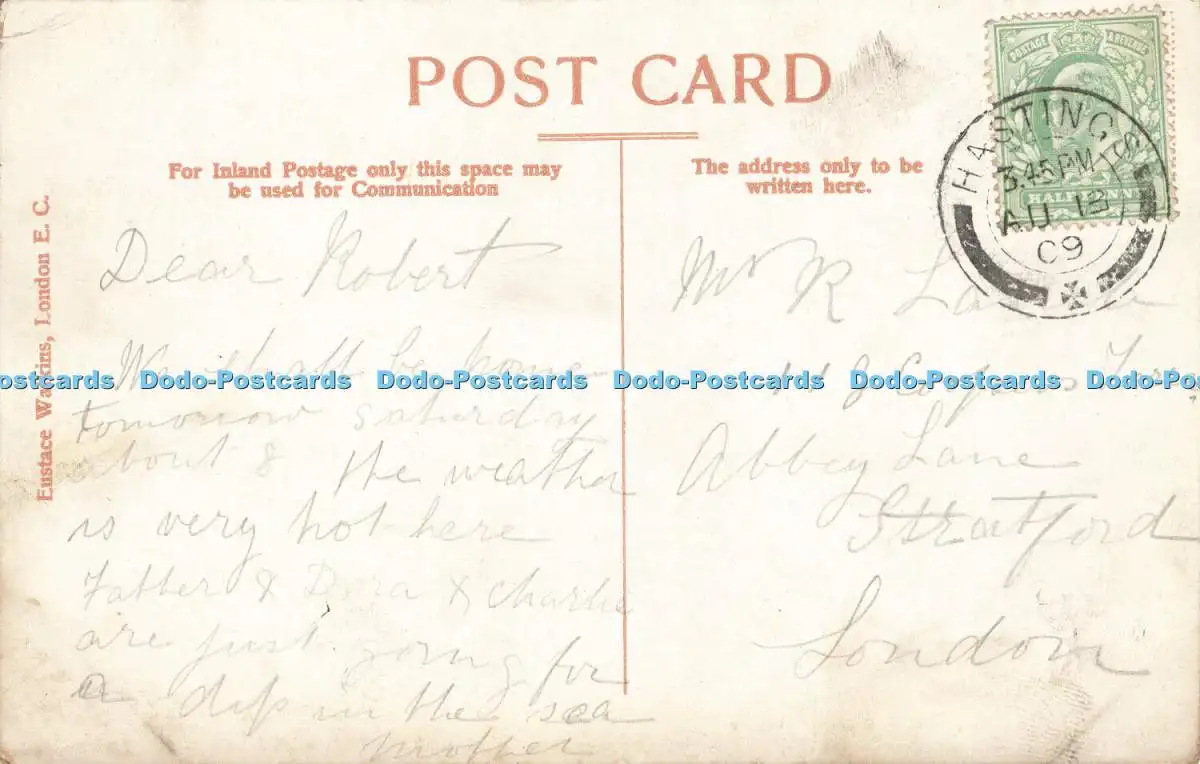 POST CARD
For Inland Postage only this space may
be used for Communication
The address only to be
written here.
Eustace Watkins, London E. C.
POSTAGE & REVENUE
HALFPENNY
HASTINGS
3.45 PM
AU 13
09
Dear Robert
We shall be home
tomorrow saturday
about 8 the weather
is very hot here
Father & Dora & Charlie
are just going for
a dip in the sea
Mother
Mr R
Abbey Lane
Stratford
London
Dodo-Postcards Dodo-Postcards Dodo-Postcards Dodo-Postcards Dodo-Postcards